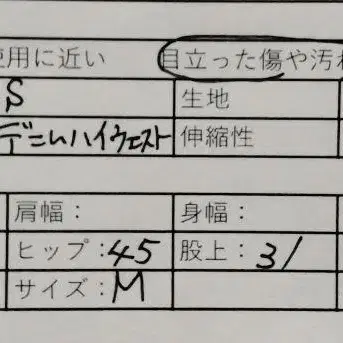 使用に近い 目立った傷や汚れ
S 生地
デニムハイウエスト 伸縮性
肩幅： 身幅：
ヒップ：45 股上：31
サイズ：M